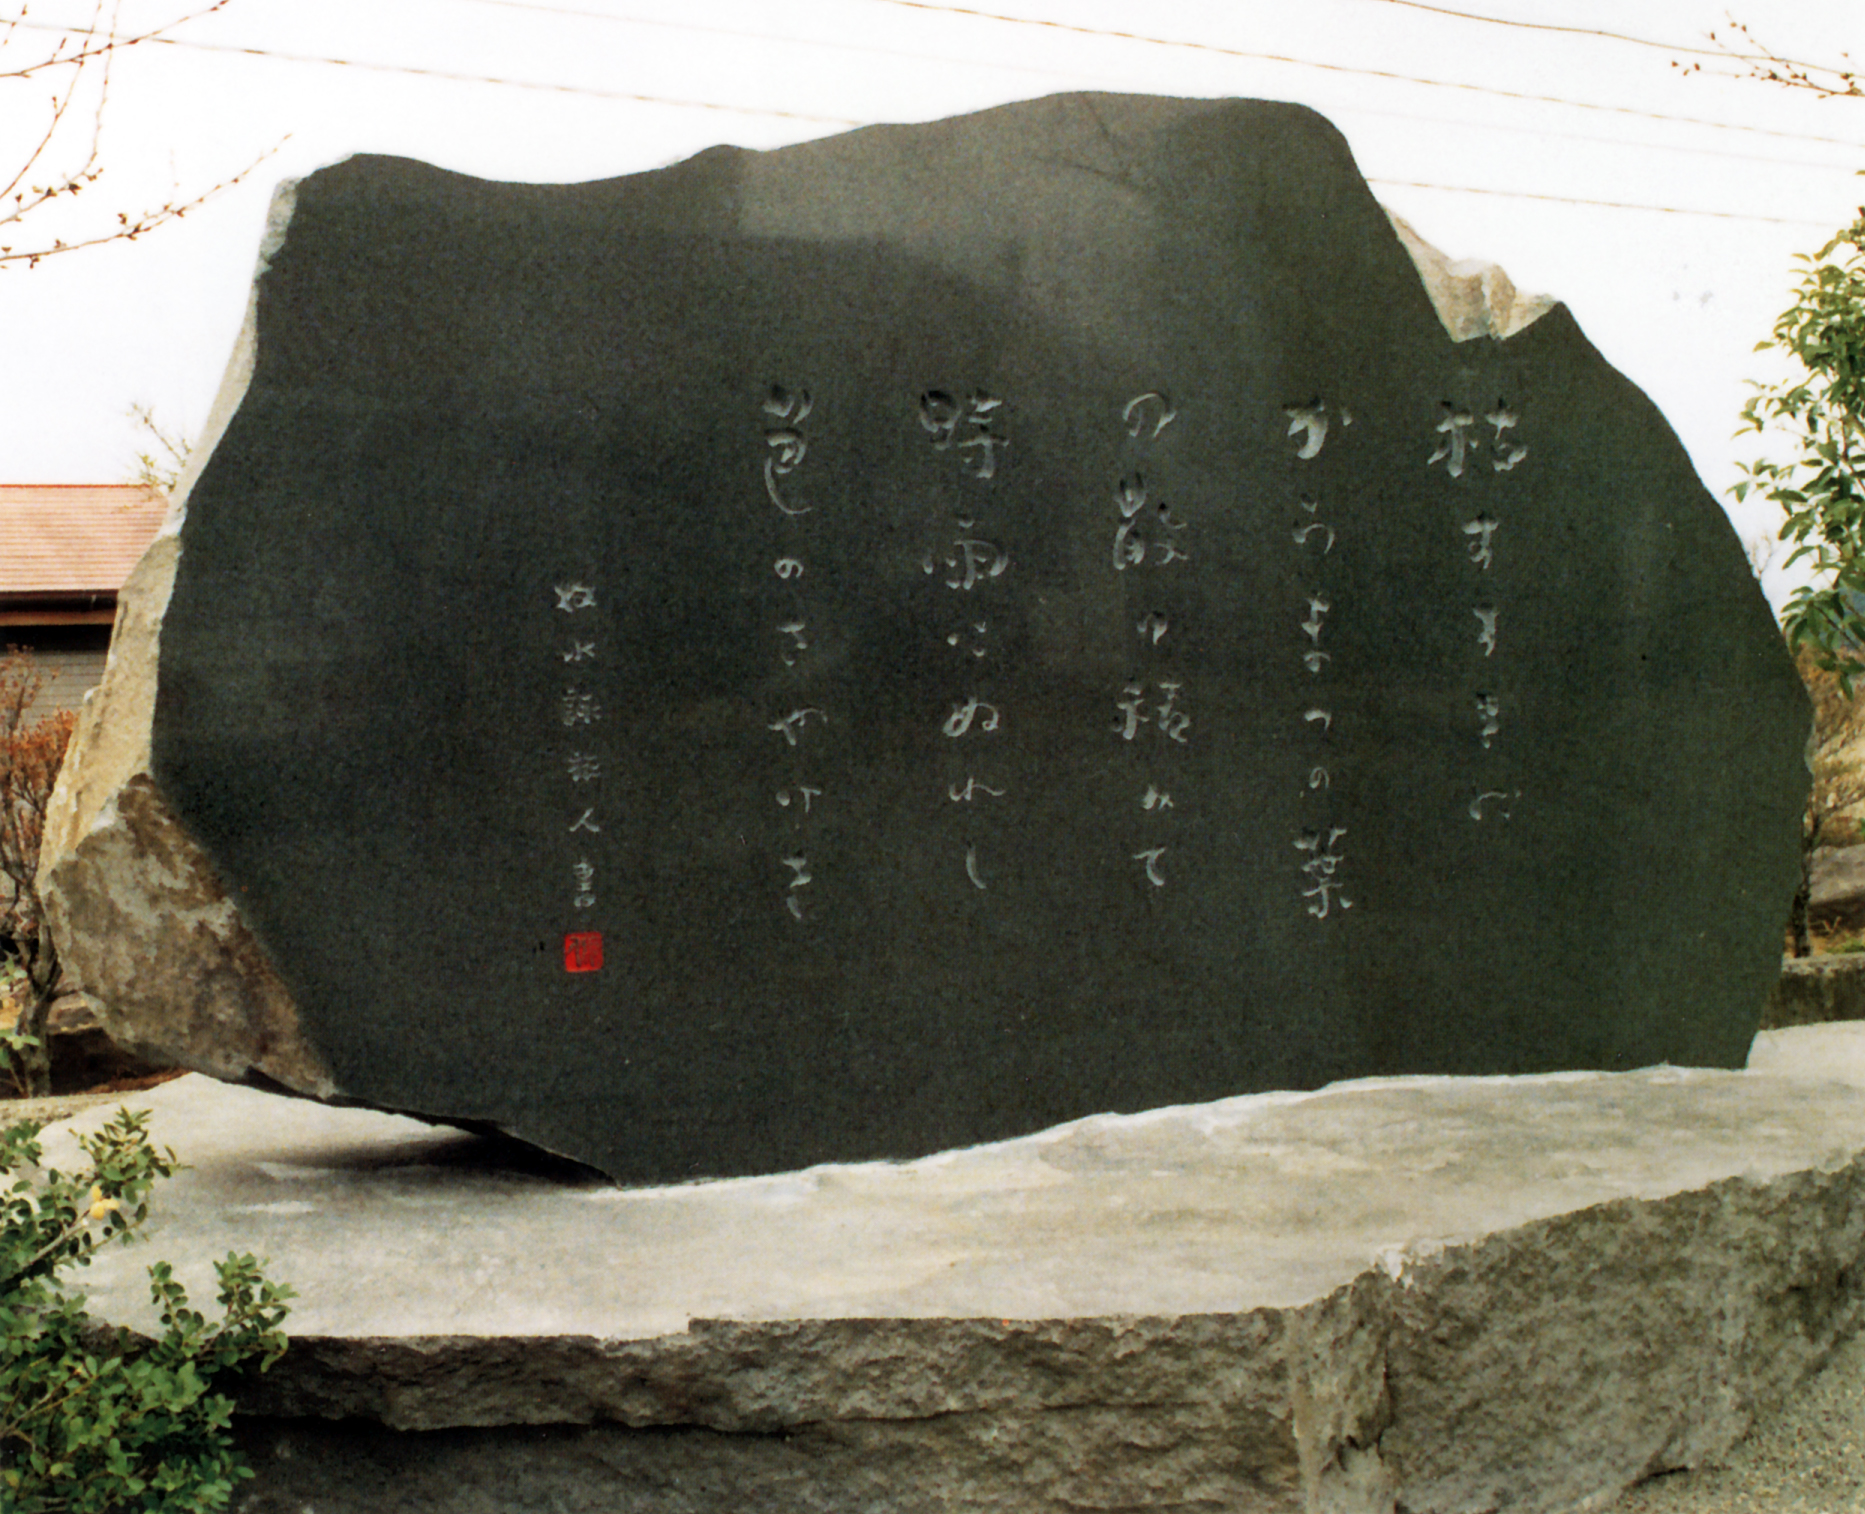 枯すすきに
からまつの葉
の散り積みて
時雨にぬれし
色のさやけき
牧水詠旅人書